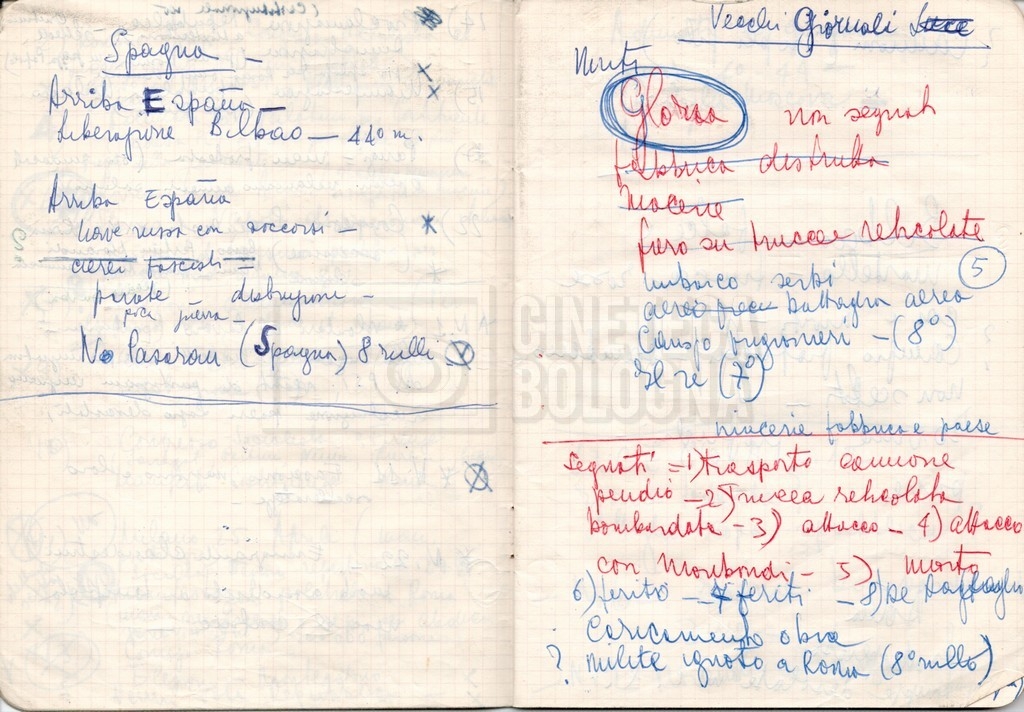 Spagna –
Arriba España –
Liberazione Bilbao – 440 m.
Arriba España
Nave russa con soccorsi –
aerei fascisti =
perdite – distruzioni –
poca guerra –
No Pasaran (Spagna) 8 rulli
Vecchi Giornali Luce
Gloria non segnati
fabbrica distrutta
Macerie
faro su trincee reticolate
5
imbarco serbi
aereo battaglia aerea
Campo prigionieri – (8°)
Il re (7°)
macerie fabbrica e paese
Segnati = 1) trasporto cannone
pendio – 2) trincea reticolata
bombardata – 3) attacco – 4) attacco
con Moribondi – 5) morto
6) ferito – 7 feriti – 8)
Caricamento obice
? milite ignoto a Roma (8° rullo)
CINETECA
BOLOGNA